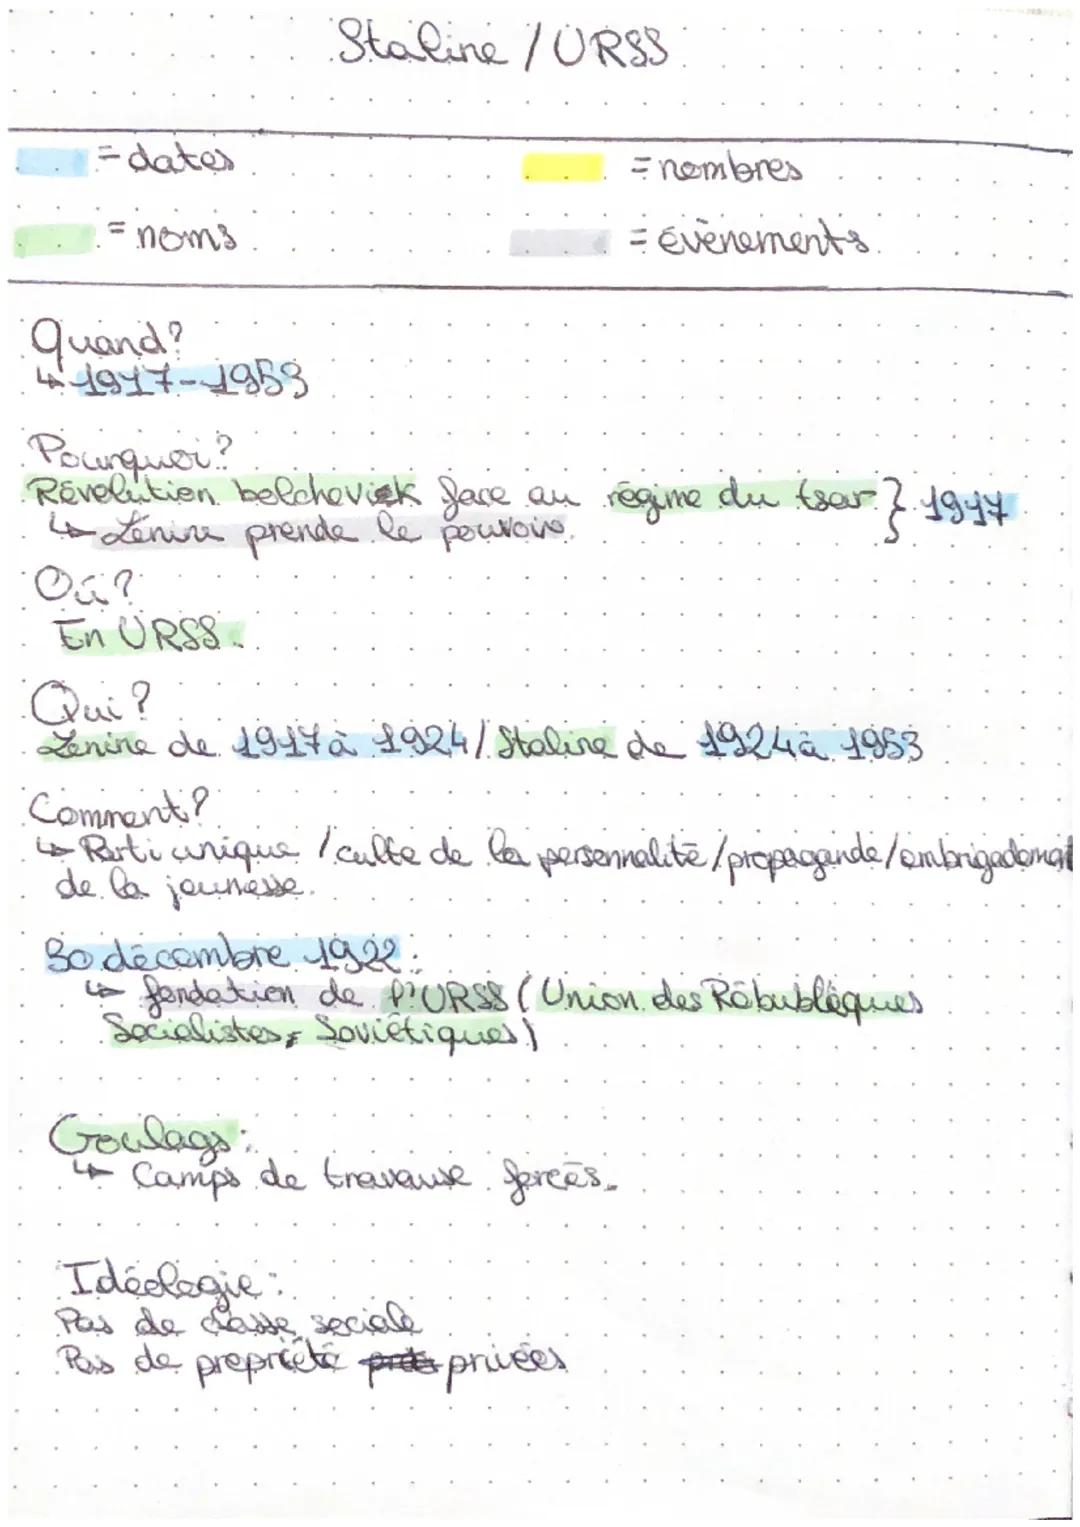 Staline / URSS
= dates
= nombres
= noms
= évènements
Quand?
↳ 1917-1953
Pourquoi?
Révolution bolchevick face au régime du tsar } 1917
↳ Lénine prende le pouvoir.
Où?
En URSS.
Qui?
Lenine de 1917 à 1924 / Staline de 1924 à 1953
Comment?
↳ Parti unique / culte de la personnalité / propagande / embrigadement
de la jeunesse.
30 décembre 1922:
↳ fondation de l'URSS (Union des Rébubléques
Socialistes Soviétiques)
Goulags:
↳ Camps de travause forcés.
Idéologie:
Pas de classe sociale
Pas de propriété privées